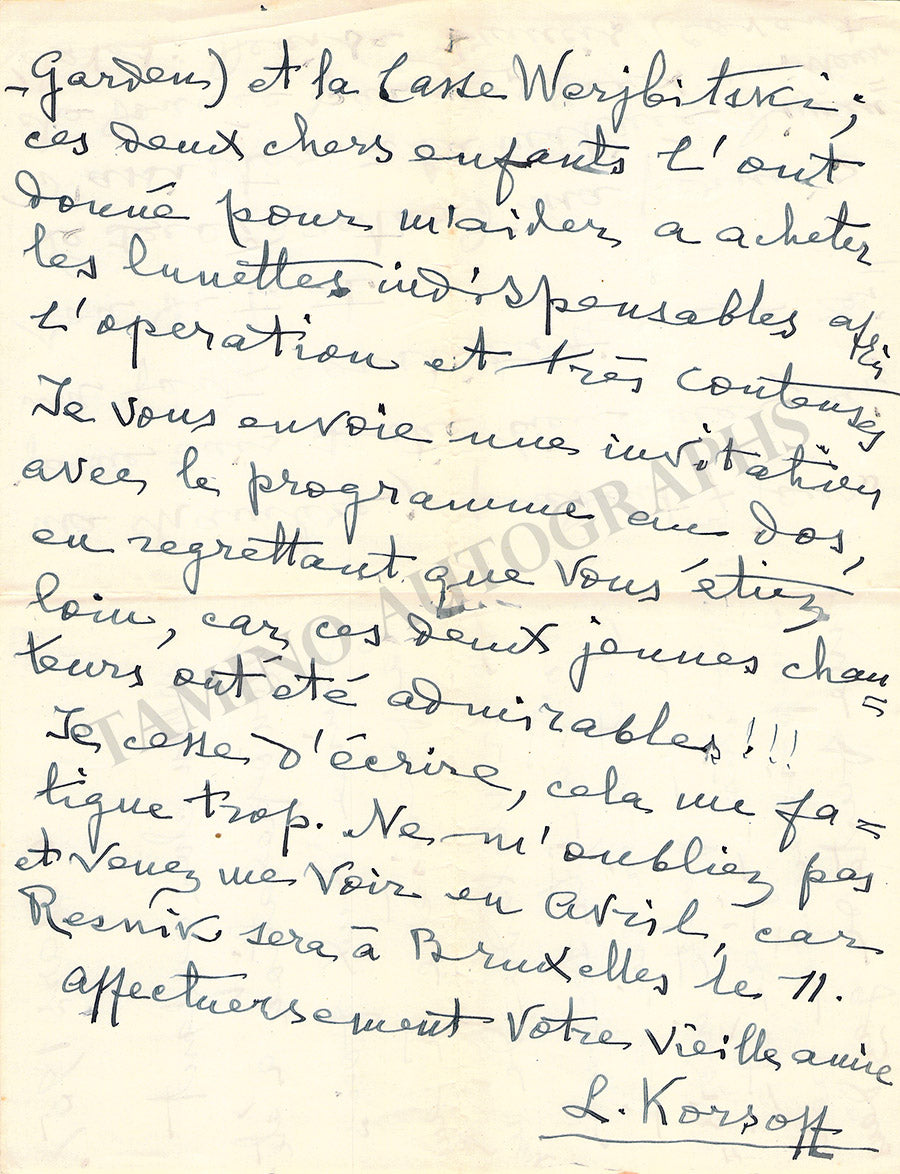 -Garden) et la basse Werjbitski;
ces deux chers enfants l'ont
donné pour m'aider a acheter
les lunettes indispensables après
l'operation et très couteuses
Je vous envoie une invitation
avec le programme au dos,
en regrettant que vous étiez
loin, car ces deux jeunes chan=
teurs ont été admirables!!!
Je cesse d'écrire, cela me fa=
tigue trop. Ne m'oubliez pas
et venez me voir en Avril, car
Resnik sera à Bruxelles le 11.
Affectuersement votre vieille amie
L. Korsoff
TAMINO AUTOGRAPHS